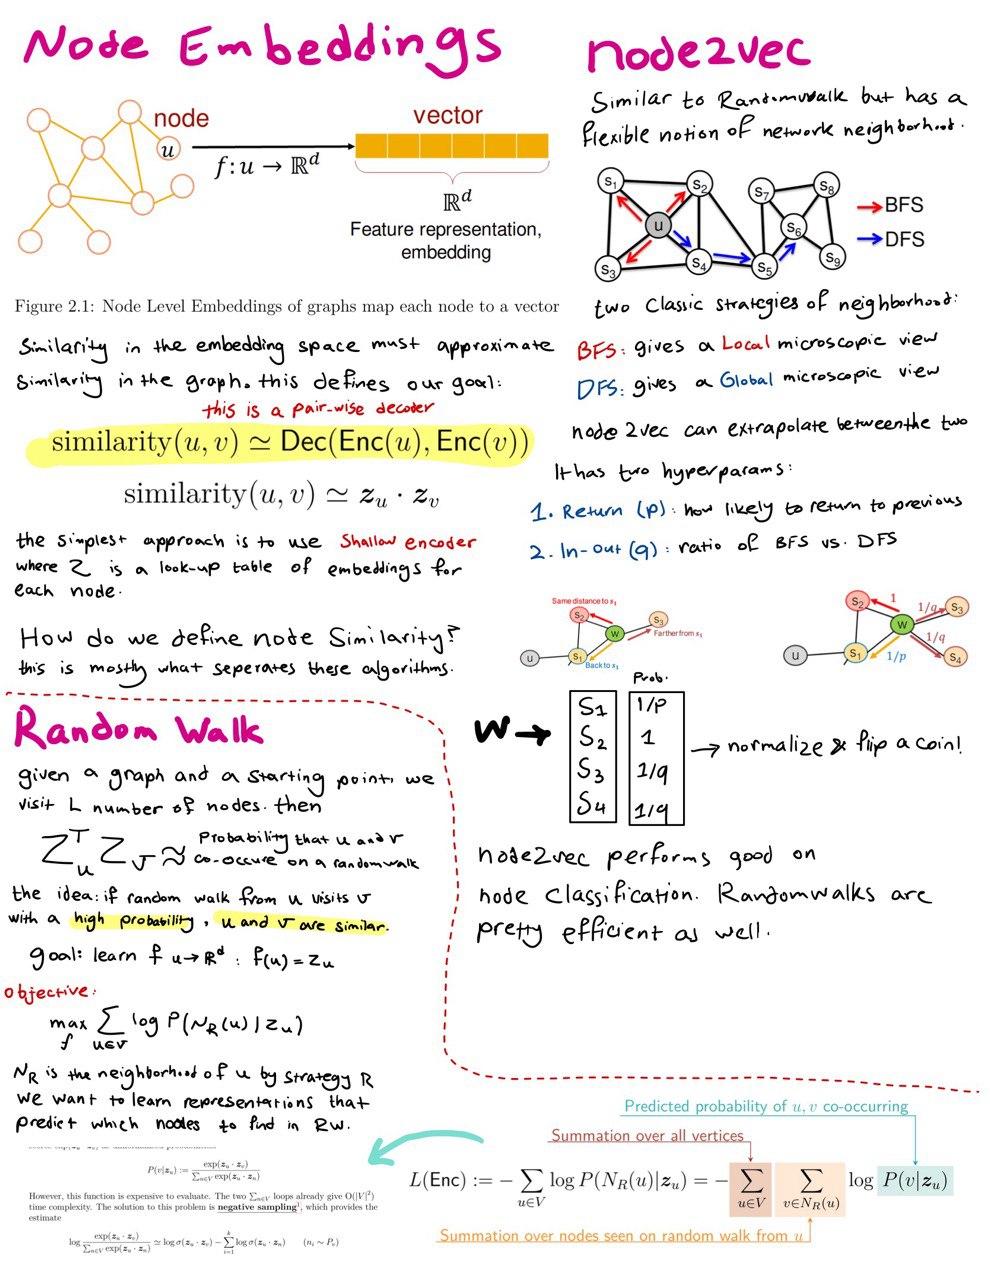 Node Embeddings
node
vector
u
f: u → ℝᵈ
ℝᵈ
Feature representation,
embedding
Figure 2.1: Node Level Embeddings of graphs map each node to a vector
Similarity in the embedding space must approximate
Similarity in the graph. this defines our goal:
this is a pair-wise decoder
similarity(u, v) ≃ Dec(Enc(u), Enc(v))
similarity(u, v) ≃ z_u · z_v
the simplest approach is to use Shallow encoder
where Z is a look-up table of embeddings for
each node.
How do we define node Similarity?
this is mostly what seperates these algorithms.
Random Walk
given a graph and a starting point, we
visit L number of nodes. then
Z_u^T Z_v ≈ Probability that u and v
co-occure on a randomwalk
the idea: if random walk from u visits v
with a high probability, u and v are similar.
goal: learn f u → ℝᵈ : f(u) = z_u
objective:
max_f ∑_{u∈V} log P(N_R(u) | z_u)
N_R is the neighborhood of u by strategy R
we want to learn representations that
predict which nodes to find in RW.
P(v|z_u) := exp(z_u · z_v) / ∑_{n∈V} exp(z_u · z_n)
However, this function is expensive to evaluate. The two ∑_{n∈V} loops already give O(|V|²)
time complexity. The solution to this problem is negative sampling¹, which provides the
estimate
log exp(z_u · z_v) / ∑_{n∈V} exp(z_u · z_n) ≃ log σ(z_u · z_v) − ∑_{i=1}^{k} log σ(z_u · z_n) (n_i ∼ P_v)
node2vec
Similar to Randomwalk but has a
flexible notion of network neighborhood.
s₁
s₂
s₇
s₈
u
s₆
s₃
s₄
s₅
s₉
BFS
DFS
two Classic strategies of neighborhood:
BFS: gives a Local microscopic view
DFS: gives a Global microscopic view
node 2vec can extrapolate between the two
It has two hyperparams:
1. Return (p): how likely to return to previous
2. In-out (q): ratio of BFS vs. DFS
Same distance to s₁
s₂
s₃
w
Farther from s₁
u
s₁
Back to s₁
s₂
1
1/q
s₃
w
1/q
u
s₁
1/p
s₄
Prob.
W →
S1 1/P
S2 1
S3 1/q
S4 1/q
→ normalize & flip a coin!
node2vec performs good on
node classification. Randomwalks are
pretty efficient as well.
Predicted probability of u, v co-occurring
Summation over all vertices
L(Enc) := − ∑_{u∈V} log P(N_R(u)|z_u) = − ∑_{u∈V} ∑_{v∈N_R(u)} log P(v|z_u)
Summation over nodes seen on random walk from u